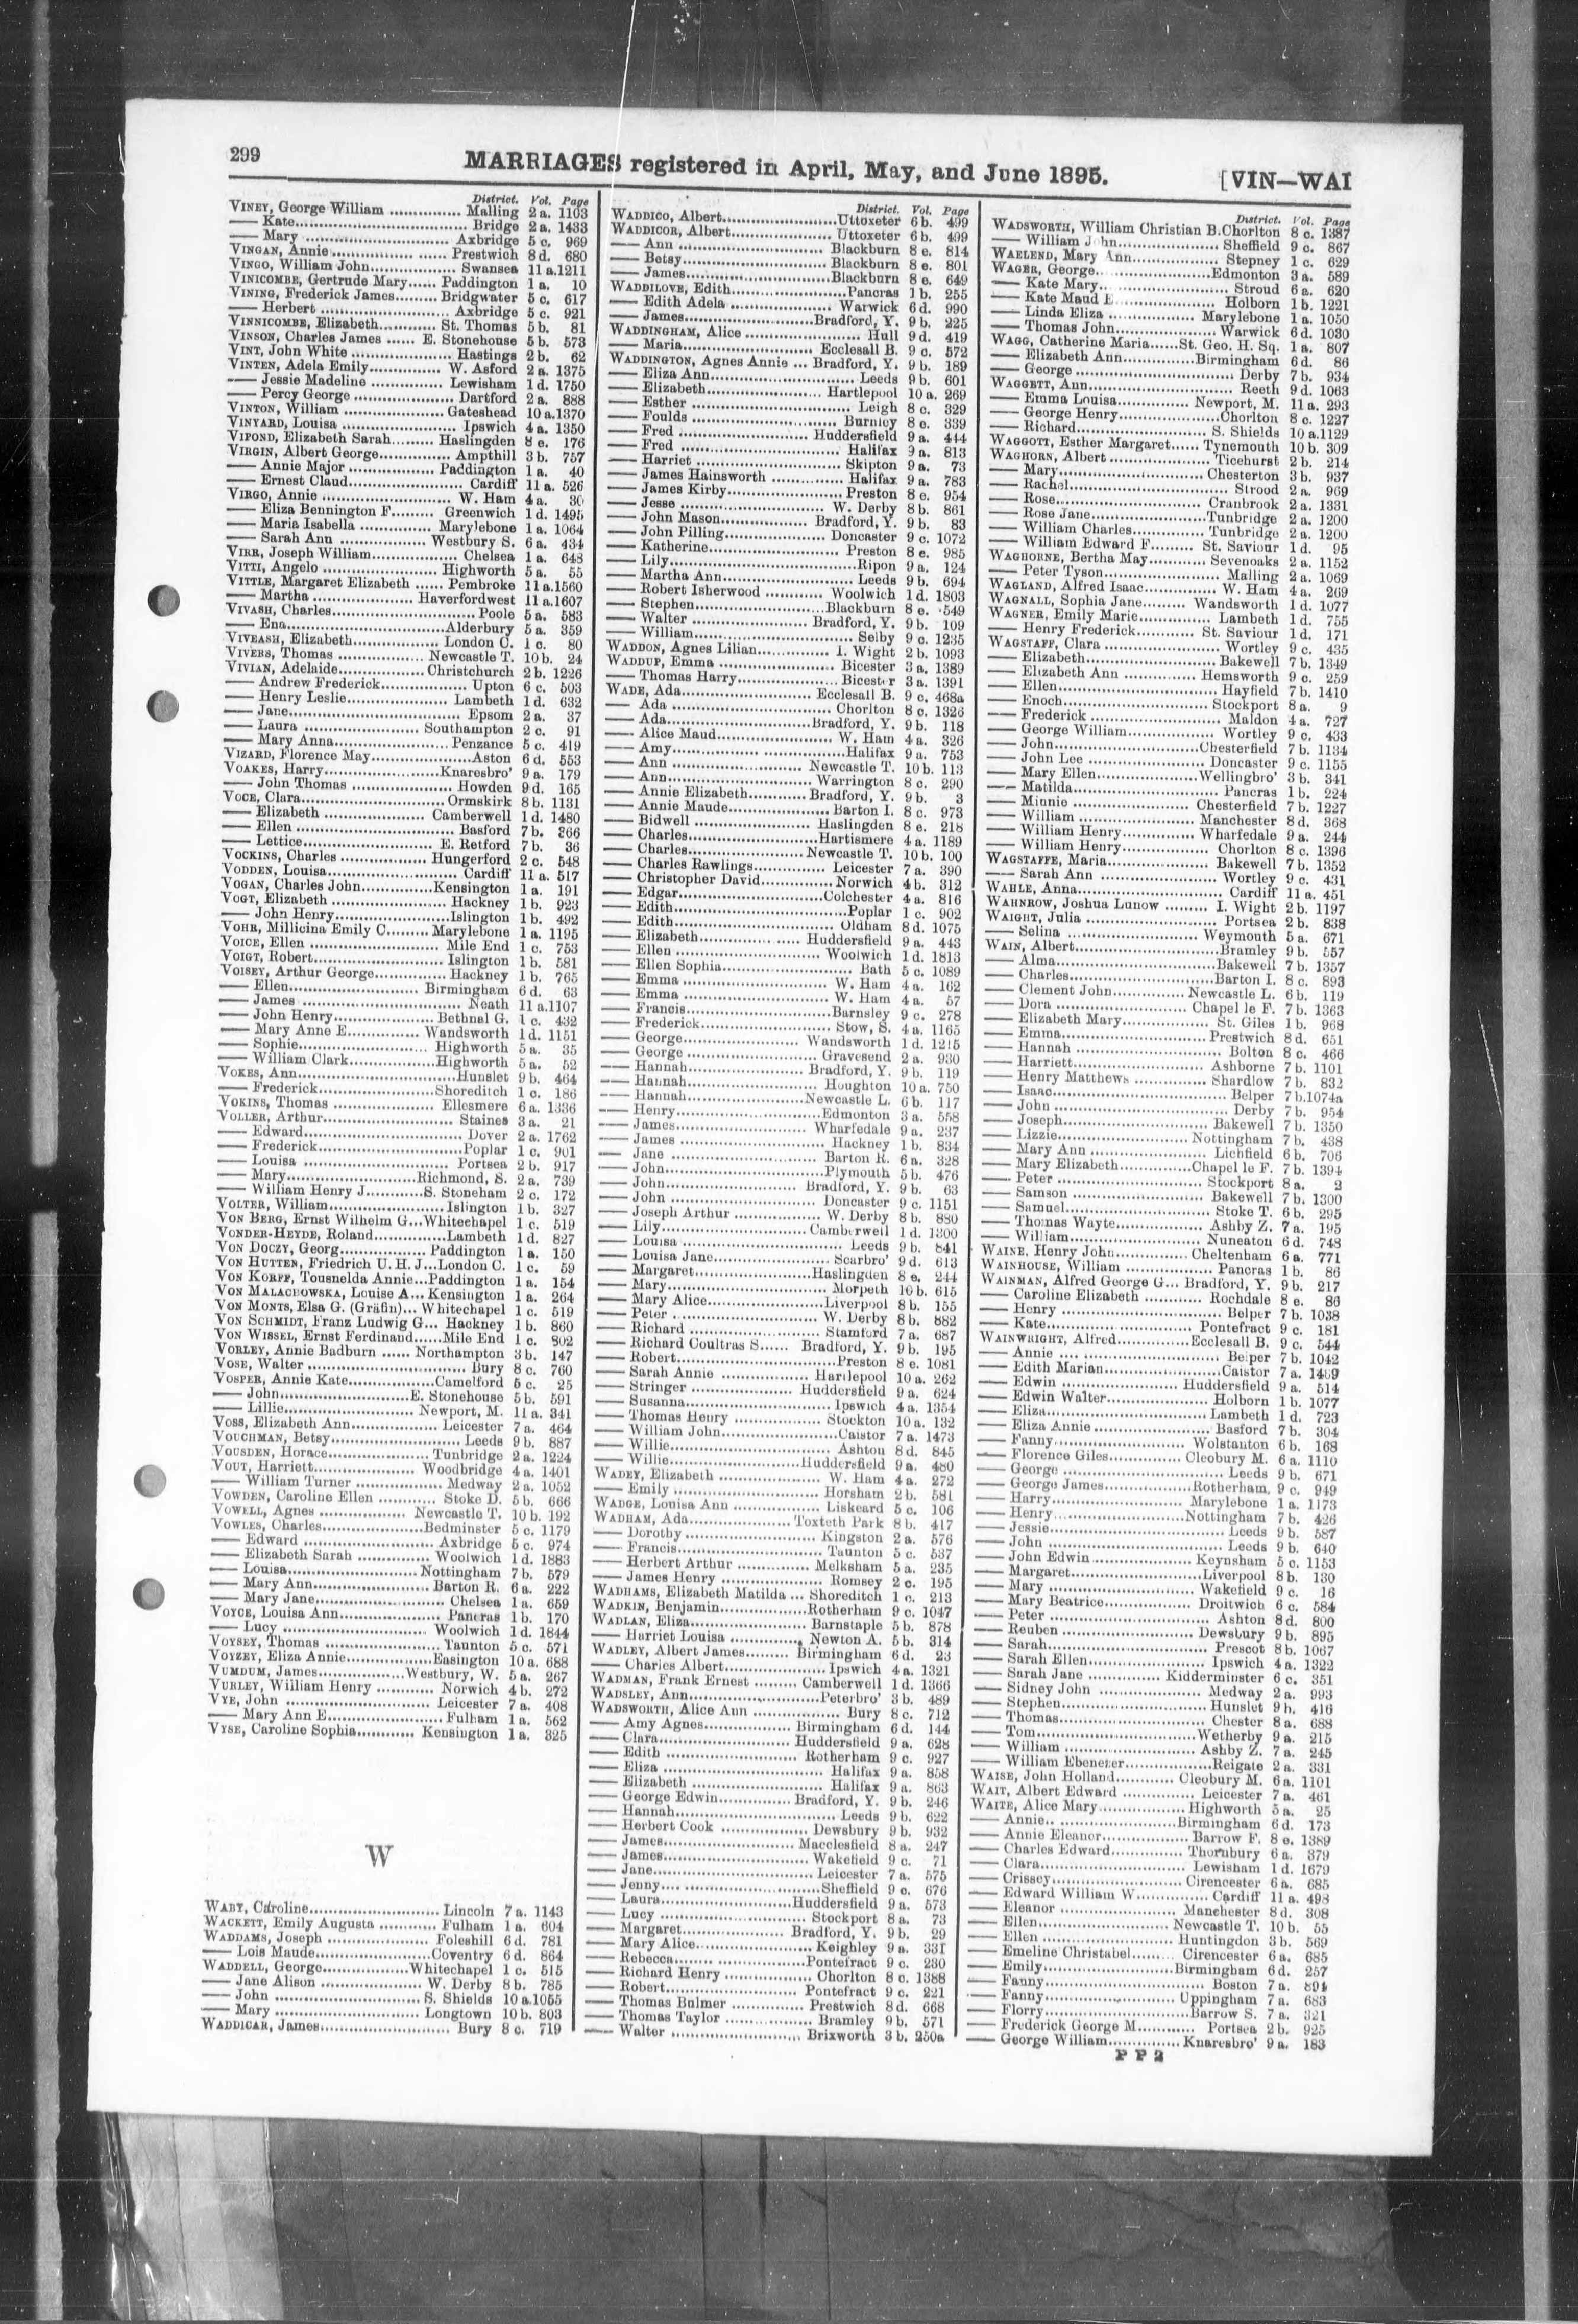 299
MARRIAGES registered in April, May, and June 1895.
[VIN—WAI
District. Vol. Page
VINEY, George William ............... Malling 2 a. 1103
—— Kate................................... Bridge 2 a. 1433
—— Mary ............................ Axbridge 5 c. 969
VINGAN, Annie................. Prestwich 8 d. 680
VINGO, William John................. Swansea 11 a. 1211
VINICOMBE, Gertrude Mary...... Paddington 1 a. 10
VINING, Frederick James......... Bridgwater 5 c. 617
—— Herbert .......................... Axbridge 5 c. 921
VINNICOMBE, Elizabeth............ St. Thomas 5 b. 81
VINSON, Charles James ...... E. Stonehouse 5 b. 573
VINT, John White .................... Hastings 2 b. 62
VINTEN, Adela Emily............... W. Asford 2 a. 1375
—— Jessie Madeline .............. Lewisham 1 d. 1750
—— Percy George .................... Dartford 2 a. 888
VINTON, William .................... Gateshead 10 a. 1370
VINYARD, Louisa ..................... Ipswich 4 a. 1350
VIPOND, Elizabeth Sarah......... Haslingden 8 e. 176
VIRGIN, Albert George.............. Ampthill 3 b. 757
—— Annie Major ................. Paddington 1 a. 40
—— Ernest Claud...................... Cardiff 11 a. 526
VIRGO, Annie .......................... W. Ham 4 a. 30
—— Eliza Bennington F......... Greenwich 1 d. 1495
—— Maria Isabella .............. Marylebone 1 a. 1064
—— Sarah Ann ................. Westbury S. 6 a. 434
VIRR, Joseph William................. Chelsea 1 a. 648
VITTI, Angelo ....................... Highworth 5 a. 55
VITTLE, Margaret Elizabeth ...... Pembroke 11 a. 1560
—— Martha .................... Haverfordwest 11 a. 1607
VIVASH, Charles............................ Poole 5 a. 583
—— Ena................................ Alderbury 5 a. 359
VIVEASH, Elizabeth................. London C. 1 c. 80
VIVERS, Thomas .................. Newcastle T. 10 b. 24
VIVIAN, Adelaide................... Christchurch 2 b. 1226
—— Andrew Frederick................. Upton 6 c. 503
—— Henry Leslie.................... Lambeth 1 d. 632
—— Jane................................... Epsom 2 a. 37
—— Laura ........................ Southampton 2 c. 91
—— Mary Anna....................... Penzance 5 c. 419
VIZARD, Florence May.................... Aston 6 d. 553
VOAKES, Harry....................... Knaresbro' 9 a. 179
—— John Thomas .................... Howden 9 d. 165
VOCE, Clara............................. Ormskirk 8 b. 1131
—— Elizabeth .................... Camberwell 1 d. 1480
—— Ellen ............................... Basford 7 b. 366
—— Lettice........................... E. Retford 7 b. 36
VOCKINS, Charles ................. Hungerford 2 c. 548
VODDEN, Louisa......................... Cardiff 11 a. 517
VOGAN, Charles John.............. Kensington 1 a. 191
VOGT, Elizabeth ....................... Hackney 1 b. 923
—— John Henry...................... Islington 1 b. 492
VOHR, Millicina Emily C........ Marylebone 1 a. 1195
VOICE, Ellen ........................ Mile End 1 c. 753
VOIGT, Robert......................... Islington 1 b. 581
VOISEY, Arthur George............... Hackney 1 b. 765
—— Ellen........................... Birmingham 6 d. 63
—— James ............................... Neath 11 a. 1107
—— John Henry.................... Bethnal G. 1 c. 432
—— Mary Anne E............... Wandsworth 1 d. 1151
—— Sophie........................... Highworth 5 a. 35
—— William Clark.................. Highworth 5 a. 52
VOKES, Ann............................ Hunslet 9 b. 464
—— Frederick....................... Shoreditch 1 c. 186
VOKINS, Thomas .................... Ellesmere 6 a. 1336
VOLLER, Arthur........................ Staines 3 a. 21
—— Edward............................... Dover 2 a. 1762
—— Frederick............................ Poplar 1 c. 901
—— Louisa ............................. Portsea 2 b. 917
—— Mary.......................... Richmond, S. 2 a. 739
—— William Henry J............ S. Stoneham 2 c. 172
VOLTER, William....................... Islington 1 b. 327
VON BERG, Ernst Wilhelm G... Whitechapel 1 c. 519
VONDER-HEYDE, Roland............... Lambeth 1 d. 827
VON DOCZY, Georg................. Paddington 1 a. 150
VON HUTTEN, Friedrich U. H. J... London C. 1 c. 59
VON KORFF, Tousnelda Annie... Paddington 1 a. 154
VON MALACHOWSKA, Louise A... Kensington 1 a. 264
VON MONTS, Elsa G. (Gräfin)... Whitechapel 1 c. 519
VON SCHMIDT, Franz Ludwig G... Hackney 1 b. 860
VON WISSEL, Ernst Ferdinand...... Mile End 1 c. 802
VORLEY, Annie Badburn ...... Northampton 3 b. 147
VOSE, Walter ............................... Bury 8 c. 760
VOSPER, Annie Kate................. Camelford 5 c. 25
—— John......................... E. Stonehouse 5 b. 591
—— Lillie.......................... Newport, M. 11 a. 341
VOSS, Elizabeth Ann................. Leicester 7 a. 464
VOUCHMAN, Betsy......................... Leeds 9 b. 887
VOUSDEN, Horace.................... Tunbridge 2 a. 1224
VOUT, Harriett..................... Woodbridge 4 a. 1401
—— William Turner ................. Medway 2 a. 1052
VOWDEN, Caroline Ellen ........... Stoke D. 5 b. 666
VOWELL, Agnes ................. Newcastle T. 10 b. 192
VOWLES, Charles.................... Bedminster 5 c. 1179
—— Edward .......................... Axbridge 5 c. 974
—— Elizabeth Sarah .............. Woolwich 1 d. 1883
—— Louisa......................... Nottingham 7 b. 579
—— Mary Ann....................... Barton R. 6 a. 222
—— Mary Jane.......................... Chelsea 1 a. 659
VOYCE, Louisa Ann.................... Pancras 1 b. 170
—— Lucy ............................. Woolwich 1 d. 1844
VOYSEY, Thomas ...................... Taunton 5 c. 571
VOYZEY, Eliza Annie................. Easington 10 a. 688
VUMDUM, James................. Westbury, W. 5 a. 267
VURLEY, William Henry ............ Norwich 4 b. 272
VYE, John ............................. Leicester 7 a. 408
—— Mary Ann E....................... Fulham 1 a. 562
VYSE, Caroline Sophia............ Kensington 1 a. 325
W
WABY, Caroline........................... Lincoln 7 a. 1143
WACKETT, Emily Augusta ............ Fulham 1 a. 604
WADDAMS, Joseph .................... Foleshill 6 d. 781
—— Lois Maude........................ Coventry 6 d. 864
WADDELL, George................. Whitechapel 1 c. 515
—— Jane Alison .................... W. Derby 8 b. 785
—— John ............................ S. Shields 10 a. 1055
—— Mary ............................. Longtown 10 b. 803
WADDICAR, James........................... Bury 8 c. 719
District. Vol. Page
WADDICO, Albert........................ Uttoxeter 6 b. 499
WADDICOR, Albert.................... Uttoxeter 6 b. 499
—— Ann ............................... Blackburn 8 e. 814
—— Betsy............................. Blackburn 8 e. 801
—— James............................. Blackburn 8 e. 649
WADDILOVE, Edith....................... Pancras 1 b. 255
—— Edith Adela ..................... Warwick 6 d. 990
—— James.......................... Bradford, Y. 9 b. 225
WADDINGHAM, Alice ....................... Hull 9 d. 419
—— Maria.......................... Ecclesall B. 9 c. 572
WADDINGTON, Agnes Annie ... Bradford, Y. 9 b. 189
—— Eliza Ann............................. Leeds 9 b. 601
—— Elizabeth....................... Hartlepool 10 a. 269
—— Esther ................................ Leigh 8 c. 329
—— Foulds ............................. Burnley 8 e. 339
—— Fred .......................... Huddersfield 9 a. 444
—— Fred ................................. Halifax 9 a. 813
—— Harriet ............................. Skipton 9 a. 73
—— James Hainsworth .............. Halifax 9 a. 783
—— James Kirby....................... Preston 8 e. 954
—— Jesse .............................. W. Derby 8 b. 861
—— John Mason.................. Bradford, Y. 9 b. 83
—— John Pilling.................... Doncaster 9 c. 1072
—— Katherine........................... Preston 8 e. 985
—— Lily..................................... Ripon 9 a. 124
—— Martha Ann.......................... Leeds 9 b. 694
—— Robert Isherwood ............ Woolwich 1 d. 1803
—— Stephen......................... Blackburn 8 e. 549
—— Walter ........................ Bradford, Y. 9 b. 109
—— William............................... Selby 9 c. 1235
WADDON, Agnes Lilian............... I. Wight 2 b. 1093
WADDUP, Emma ....................... Bicester 3 a. 1389
—— Thomas Harry.................... Bicester 3 a. 1391
WADE, Ada......................... Ecclesall B. 9 c. 468a
—— Ada ............................... Chorlton 8 c. 1326
—— Ada............................ Bradford, Y. 9 b. 118
—— Alice Maud........................ W. Ham 4 a. 326
—— Amy................................. Halifax 9 a. 753
—— Ann ........................... Newcastle T. 10 b. 113
—— Ann............................. Warrington 8 c. 290
—— Annie Elizabeth............ Bradford, Y. 9 b. 3
—— Annie Maude.................... Barton I. 8 c. 973
—— Bidwell ........................ Haslingden 8 e. 218
—— Charles......................... Hartismere 4 a. 1189
—— Charles....................... Newcastle T. 10 b. 100
—— Charles Rawlings.............. Leicester 7 a. 390
—— Christopher David.............. Norwich 4 b. 312
—— Edgar............................ Colchester 4 a. 816
—— Edith................................ Poplar 1 c. 902
—— Edith............................... Oldham 8 d. 1075
—— Elizabeth.................. Huddersfield 9 a. 443
—— Ellen ............................. Woolwich 1 d. 1813
—— Ellen Sophia......................... Bath 5 c. 1089
—— Emma ............................. W. Ham 4 a. 162
—— Emma ............................. W. Ham 4 a. 57
—— Francis........................... Barnsley 9 c. 278
—— Frederick........................ Stow, S. 4 a. 1165
—— George....................... Wandsworth 1 d. 1215
—— George .......................... Gravesend 2 a. 930
—— Hannah........................ Bradford, Y. 9 b. 119
—— Hannah......................... Houghton 10 a. 750
—— Hannah...................... Newcastle L. 6 b. 117
—— Henry........................... Edmonton 3 a. 558
—— James........................ Wharfedale 9 a. 237
—— James ............................ Hackney 1 b. 834
—— Jane ............................ Barton R. 6 a. 328
—— John............................. Plymouth 5 b. 476
—— John........................ Bradford, Y. 9 b. 63
—— John ............................ Doncaster 9 c. 1151
—— Joseph Arthur ................. W. Derby 8 b. 880
—— Lily........................... Camberwell 1 d. 1300
—— Louisa ............................... Leeds 9 b. 841
—— Louisa Jane..................... Scarbro' 9 d. 613
—— Margaret..................... Haslingden 8 e. 244
—— Mary............................... Morpeth 10 b. 615
—— Mary Alice..................... Liverpool 8 b. 155
—— Peter ............................ W. Derby 8 b. 882
—— Richard ......................... Stamford 7 a. 687
—— Richard Coultras S...... Bradford, Y. 9 b. 195
—— Robert............................. Preston 8 e. 1081
—— Sarah Annie ................. Hartlepool 10 a. 262
—— Stringer .................... Huddersfield 9 a. 624
—— Susanna.......................... Ipswich 4 a. 1354
—— Thomas Henry ................ Stockton 10 a. 132
—— William John..................... Caistor 7 a. 1473
—— Willie............................... Ashton 8 d. 845
—— Willie....................... Huddersfield 9 a. 480
WADEY, Elizabeth ................... W. Ham 4 a. 272
—— Emily ............................ Horsham 2 b. 581
WADGE, Louisa Ann ................. Liskeard 5 c. 106
WADHAM, Ada.................... Toxteth Park 8 b. 417
—— Dorothy ......................... Kingston 2 a. 576
—— Francis........................... Taunton 5 c. 537
—— Herbert Arthur .............. Melksham 5 a. 235
—— James Henry .................... Romsey 2 c. 195
WADHAMS, Elizabeth Matilda ... Shoreditch 1 c. 213
WADKIN, Benjamin................. Rotherham 9 c. 1047
WADLAN, Eliza....................... Barnstaple 5 b. 878
—— Harriet Louisa ............... Newton A. 5 b. 314
WADLEY, Albert James......... Birmingham 6 d. 23
—— Charles Albert.................... Ipswich 4 a. 1321
WADMAN, Frank Ernest ......... Camberwell 1 d. 1366
WADSLEY, Ann....................... Peterbro' 3 b. 489
WADSWORTH, Alice Ann ................ Bury 8 c. 712
—— Amy Agnes.................. Birmingham 6 d. 144
—— Clara......................... Huddersfield 9 a. 628
—— Edith .......................... Rotherham 9 c. 927
—— Eliza ............................... Halifax 9 a. 858
—— Elizabeth ......................... Halifax 9 a. 863
—— George Edwin.............. Bradford, Y. 9 b. 246
—— Hannah............................... Leeds 9 b. 622
—— Herbert Cook ................. Dewsbury 9 b. 932
—— James......................... Macclesfield 8 a. 247
—— James............................ Wakefield 9 c. 71
—— Jane.............................. Leicester 7 a. 575
—— Jenny............................ Sheffield 9 c. 676
—— Laura........................ Huddersfield 9 a. 573
—— Lucy ............................ Stockport 8 a. 73
—— Margaret.................... Bradford, Y. 9 b. 29
—— Mary Alice....................... Keighley 9 a. 331
—— Rebecca....................... Pontefract 9 c. 230
—— Richard Henry ................. Chorlton 8 c. 1388
—— Robert........................ Pontefract 9 c. 221
—— Thomas Balmer ............... Prestwich 8 d. 668
—— Thomas Taylor ................ Bramley 9 b. 571
—— Walter ......................... Brixworth 3 b. 250a
District. Vol. Page
WADSWORTH, William Christian B. Chorlton 8 c. 1387
—— William John................... Sheffield 9 c. 867
WAELEND, Mary Ann................. Stepney 1 c. 629
WAGER, George...................... Edmonton 3 a. 589
—— Kate Mary......................... Stroud 6 a. 620
—— Kate Maud E.................... Holborn 1 b. 1221
—— Linda Eliza ................. Marylebone 1 a. 1050
—— Thomas John.................... Warwick 6 d. 1030
WAGG, Catherine Maria...... St. Geo. H. Sq. 1 a. 807
—— Elizabeth Ann.............. Birmingham 6 d. 86
—— George ............................... Derby 7 b. 934
WAGGETT, Ann............................ Reeth 9 d. 1063
—— Emma Louisa.............. Newport, M. 11 a. 293
—— George Henry................... Chorlton 8 c. 1227
—— Richard......................... S. Shields 10 a. 1129
WAGGOTT, Esther Margaret...... Tynemouth 10 b. 309
WAGHORN, Albert .................... Ticehurst 2 b. 214
—— Mary............................ Chesterton 3 b. 937
—— Rachel............................... Strood 2 a. 969
—— Rose............................. Cranbrook 2 a. 1331
—— Rose Jane...................... Tunbridge 2 a. 1200
—— William Charles.............. Tunbridge 2 a. 1200
—— William Edward F......... St. Saviour 1 d. 95
WAGHORNE, Bertha May............ Sevenoaks 2 a. 1152
—— Peter Tyson........................ Malling 2 a. 1069
WAGLAND, Alfred Isaac............... W. Ham 4 a. 269
WAGNALL, Sophia Jane......... Wandsworth 1 d. 1077
WAGNER, Emily Marie............... Lambeth 1 d. 755
—— Henry Frederick............ St. Saviour 1 d. 171
WAGSTAFF, Clara ........................ Wortley 9 c. 435
—— Elizabeth......................... Bakewell 7 b. 1349
—— Elizabeth Ann .............. Hemsworth 9 c. 259
—— Ellen............................... Hayfield 7 b. 1410
—— Enoch............................. Stockport 8 a. 9
—— Frederick .......................... Maldon 4 a. 727
—— George William................. Wortley 9 c. 433
—— John............................. Chesterfield 7 b. 1134
—— John Lee ........................ Doncaster 9 c. 1155
—— Mary Ellen.................... Wellingbro' 3 b. 341
—— Matilda............................. Pancras 1 b. 224
—— Minnie ....................... Chesterfield 7 b. 1227
—— William ........................ Manchester 8 d. 368
—— William Henry.............. Wharfedale 9 a. 244
—— William Henry................. Chorlton 8 c. 1396
WAGSTAFFE, Maria.................... Bakewell 7 b. 1352
—— Sarah Ann ........................ Wortley 9 c. 431
WAHLE, Anna............................. Cardiff 11 a. 451
WAHNROW, Joshua Lunow ......... I. Wight 2 b. 1197
WAIGHT, Julia .......................... Portsea 2 b. 838
—— Selina ........................... Weymouth 5 a. 671
WAIN, Albert............................ Bramley 9 b. 557
—— Alma............................... Bakewell 7 b. 1357
—— Charles............................ Barton I. 8 c. 893
—— Clement John............... Newcastle L. 6 b. 119
—— Dora ......................... Chapel le F. 7 b. 1363
—— Elizabeth Mary................. St. Giles 1 b. 968
—— Emma............................. Prestwich 8 d. 651
—— Hannah ............................ Bolton 8 c. 466
—— Harriett......................... Ashborne 7 b. 1101
—— Henry Matthews ............... Shardlow 7 b. 832
—— Isaac................................. Belper 7 b. 1074a
—— John ................................. Derby 7 b. 954
—— Joseph........................... Bakewell 7 b. 1350
—— Lizzie......................... Nottingham 7 b. 438
—— Mary Ann ...................... Lichfield 6 b. 706
—— Mary Elizabeth............ Chapel le F. 7 b. 1394
—— Peter ............................ Stockport 8 a. 2
—— Samson ........................ Bakewell 7 b. 1300
—— Samuel............................ Stoke T. 6 b. 295
—— Thomas Wayte................ Ashby Z. 7 a. 195
—— William........................ Nuneaton 6 d. 748
WAINE, Henry John............... Cheltenham 6 a. 771
WAINHOUSE, William ................. Pancras 1 b. 86
WAINMAN, Alfred George G... Bradford, Y. 9 b. 217
—— Caroline Elizabeth ............ Rochdale 8 e. 86
—— Henry ............................... Belper 7 b. 1038
—— Kate............................. Pontefract 9 c. 181
WAINWRIGHT, Alfred.............. Ecclesall B. 9 c. 544
—— Annie ............................... Belper 7 b. 1042
—— Edith Marian..................... Caistor 7 a. 1469
—— Edwin ........................ Huddersfield 9 a. 514
—— Edwin Walter.................... Holborn 1 b. 1077
—— Eliza............................... Lambeth 1 d. 723
—— Eliza Annie ...................... Basford 7 b. 304
—— Fanny.......................... Wolstanton 6 b. 168
—— Florence Giles.............. Cleobury M. 6 a. 1110
—— George ............................... Leeds 9 b. 671
—— George James................. Rotherham, 9 c. 949
—— Harry......................... Marylebone 1 a. 1173
—— Henry.......................... Nottingham 7 b. 426
—— Jessie................................. Leeds 9 b. 587
—— John ................................. Leeds 9 b. 640
—— John Edwin.................... Keynsham 5 c. 1153
—— Margaret........................ Liverpool 8 b. 130
—— Mary ............................ Wakefield 9 c. 16
—— Mary Beatrice.................. Droitwich 6 c. 584
—— Peter ................................ Ashton 8 d. 800
—— Reuben .......................... Dewsbury 9 b. 895
—— Sarah............................... Prescot 8 b. 1067
—— Sarah Ellen........................ Ipswich 4 a. 1322
—— Sarah Jane .............. Kidderminster 6 c. 351
—— Sidney John ..................... Medway 2 a. 993
—— Stephen............................ Hunslet 9 b. 416
—— Thomas............................ Chester 8 a. 688
—— Tom............................... Wetherby 9 a. 215
—— William .......................... Ashby Z. 7 a. 245
—— William Ebenezer................ Reigate 2 a. 331
WAISE, John Holland............ Cleobury M. 6 a. 1101
WAIT, Albert Edward ............... Leicester 7 a. 461
WAITE, Alice Mary................. Highworth 5 a. 25
—— Annie......................... Birmingham 6 d. 173
—— Annie Eleanor................. Barrow F. 8 e. 1389
—— Charles Edward.............. Thornbury 6 a. 379
—— Clara............................. Lewisham 1 d. 1679
—— Crissey......................... Cirencester 6 a. 685
—— Edward William W.............. Cardiff 11 a. 493
—— Eleanor ...................... Manchester 8 d. 308
—— Ellen........................ Newcastle T. 10 b. 55
—— Ellen ......................... Huntingdon 3 b. 569
—— Emeline Christabel......... Cirencester 6 a. 685
—— Emily......................... Birmingham 6 d. 257
—— Fanny............................... Boston 7 a. 894
—— Fanny.......................... Uppingham 7 a. 683
—— Florry......................... Barrow S. 7 a. 321
—— Frederick George M............ Portsea 2 b. 925
—— George William.............. Knaresbro' 9 a. 183
P P 2